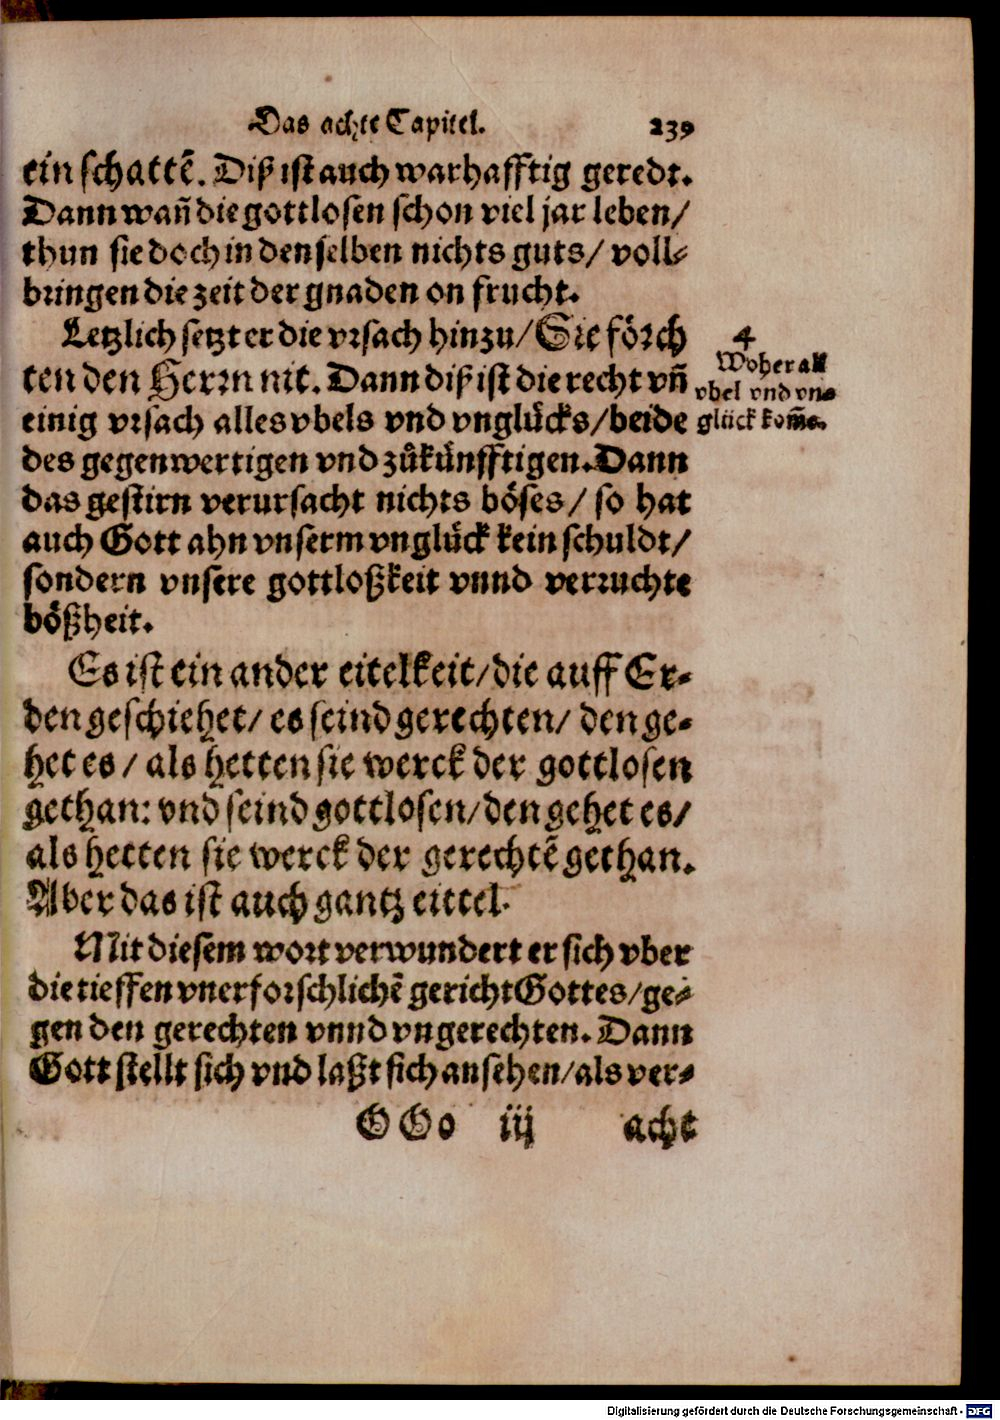 Das achte Capitel. 239
ein schattẽ. Diß ist auch warhafftig geredt.
Dann wañ die gottlosen schon viel jar leben/
thun sie doch in denselben nichts guts/ voll⸗
bringen die zeit der gnaden on frucht.
Letzlich setzt er die vrsach hinzu/ Sie förch
ten den Herrn nit. Dann diß ist die recht vñ
einig vrsach alles vbels vnd vnglücks/ beide
des gegenwertigen vnd zůkünfftigen. Dann
das gestirn verursacht nichts böses/ so hat
auch Gott ahn vnserm vnglück kein schuldt/
sondern vnsere gottloßkeit vnnd verruchte
bößheit.
4
Woher all
vbel vnd vn⸗
glück kom̃e.
Es ist ein ander eitelkeit/ die auff Er⸗
den geschiehet/ es seind gerechten/ den ge⸗
het es/ als hetten sie werck der gottlosen
gethan: vnd seind gottlosen/ den gehet es/
als hetten sie werck der gerechtẽ gethan.
Aber das ist auch gantz eittel.
Mit diesem wort verwundert er sich vber
die tieffen vnerforschlichẽ gericht Gottes/ ge⸗
gen den gerechten vnnd vngerechten. Dann
Gott stellt sich vnd laßt sich ansehen/ als ver⸗
GGo iij acht
Digitalisierung gefördert durch die Deutsche Forschungsgemeinschaft - DFG